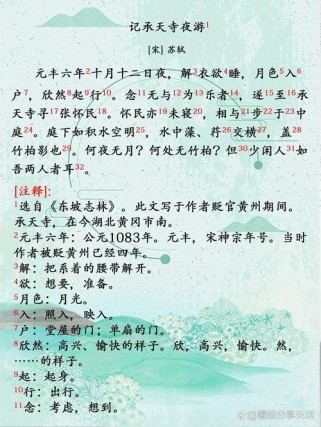 记承天寺夜游1
[宋] 苏轼
元丰六年2十月十二日夜，解3衣欲4睡，月色5入6
户7，欣然8起9行10。念11无与12为13乐者14，遂15至16承
天寺寻17张怀民18。怀民亦19未寝20，相与21步22于23中
庭24。庭下如积水空明25，水中藻、荇26交横27，盖28
竹柏影也29。何夜无月？何处无竹柏？但30少闲人31如
吾两人者耳32。
[注释]:
1选自《东坡志林》。此文写于作者贬官黄州期间。
承天寺，在今湖北黄冈市南。
2元丰六年：公元1083年。元丰，宋神宗年号。当时
作者被贬黄州已经四年。
3解：把系着的腰带解开。
4欲：想要，准备。
5月色：月光。
6入：照入，映入。
7户：堂屋的门；单扇的门。
8欣然：高兴、愉快的样子。欣，高兴，愉快。然，
……的样子。
9起：起身。
10行：出行。
11念：考虑，想到。